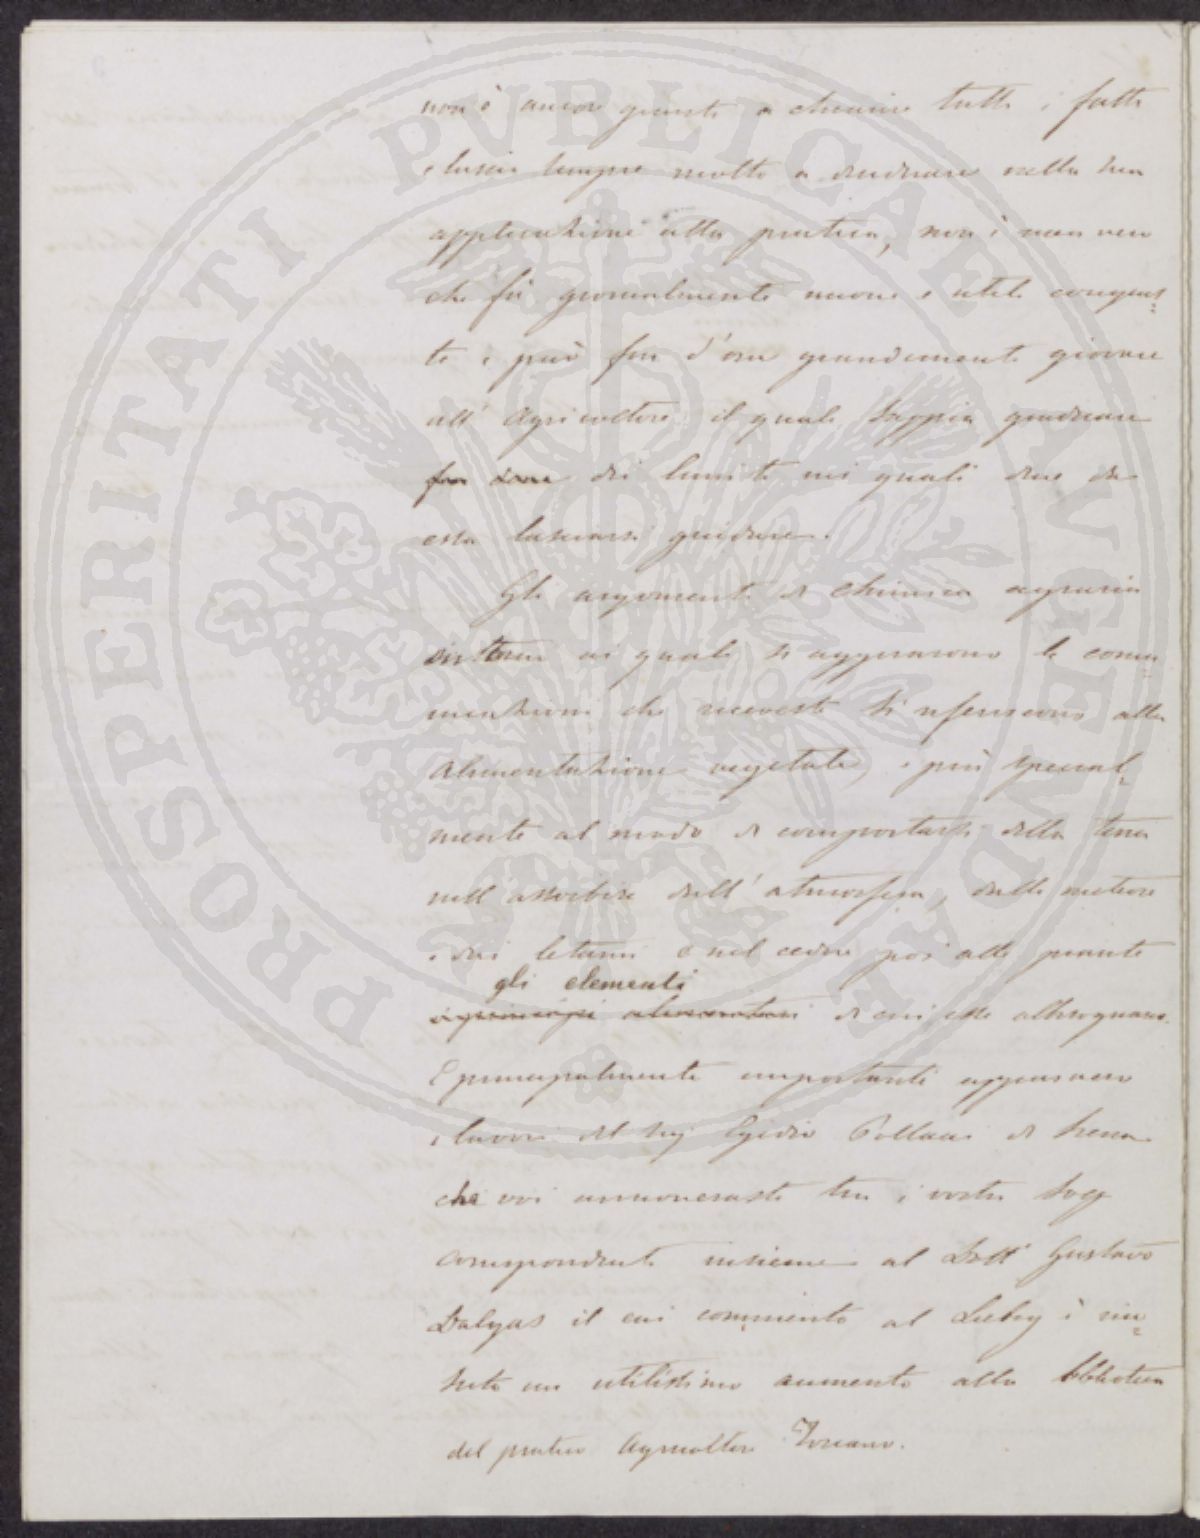 non è ancor giunta a chiarire tutti i fatti
e lascia sempre molto a desiderare nella sua
applicazione alla pratica, non è men vero
che fà giornalmente nuove e utili conquis=
te e può fin d'ora grandemente giovare
all' Agricoltore il quale sappia
dei limiti nei quali deve da
essa lasciarsi guidare.
Gli argomenti di Chimica agraria
ai quali si aggirarono le comu=
nicazioni che riceveste si riferiscono alla
Alimentazione vegetale, e più special=
mente al modo di comportarsi della terra
nell'assorbire dall'atmosfera, dalle meteore
e dai letami e nel cedere poi alle piante
gli elementi
i principi alimentari di cui esse abbisognano.
E principalmente importanti apparvero
i lavori del Sig Egidio Pollacci di Siena
che voi annoveraste tra i vostri Socj
corrispondenti insieme al Dott Gustavo
Dalgas il cui commento al Liebig è riu=
scito un utilissimo aumento alla biblioteca
del pratico Agricoltore Toscano.
PROSPERITATI PUBLICAE AUGENDAE